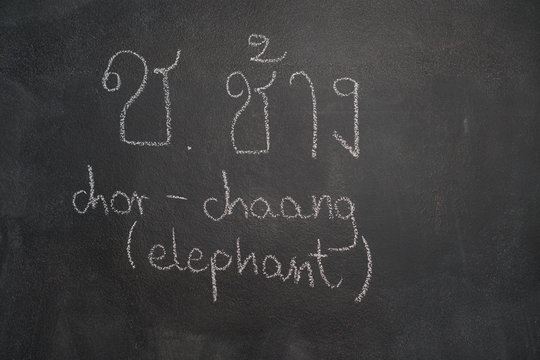 ช. ช้าง
chor - chaang
(elephant)